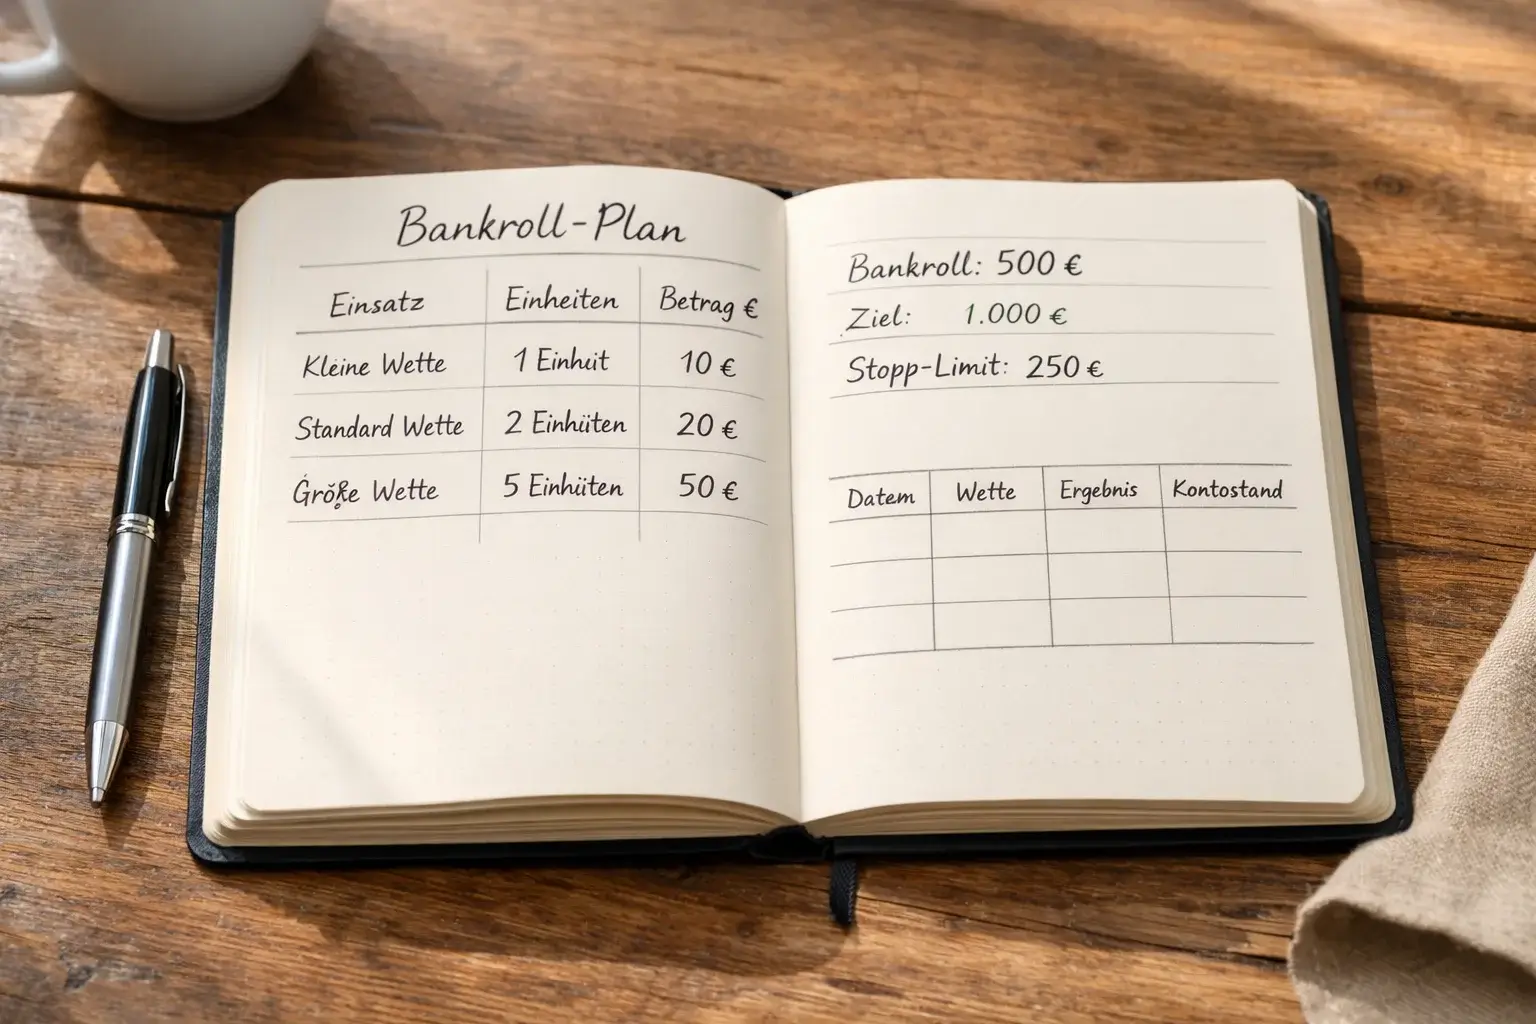 Bankroll-Plan
Einsatz Einheiten Betrag €
Kleine Wette 1 Einhuit 10 €
Standard Wette 2 Einhüten 20 €
Größe Wette 5 Einhüten 50 €
Bankroll: 500 €
Ziel: 1.000 €
Stopp-Limit: 250 €
Datem Wette Ergebnis Kontostand